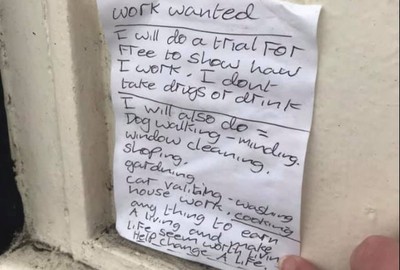 work wanted
I will do a trial For
Free to show how
I work. I dont
take drugs or drink
I will also do =
Dog walking - minding.
window cleaning.
shoping.
gardning
car valiting - washing
house work. cooking
any thing to earn
A living and make
Life seem worth livin
Help change A Life.